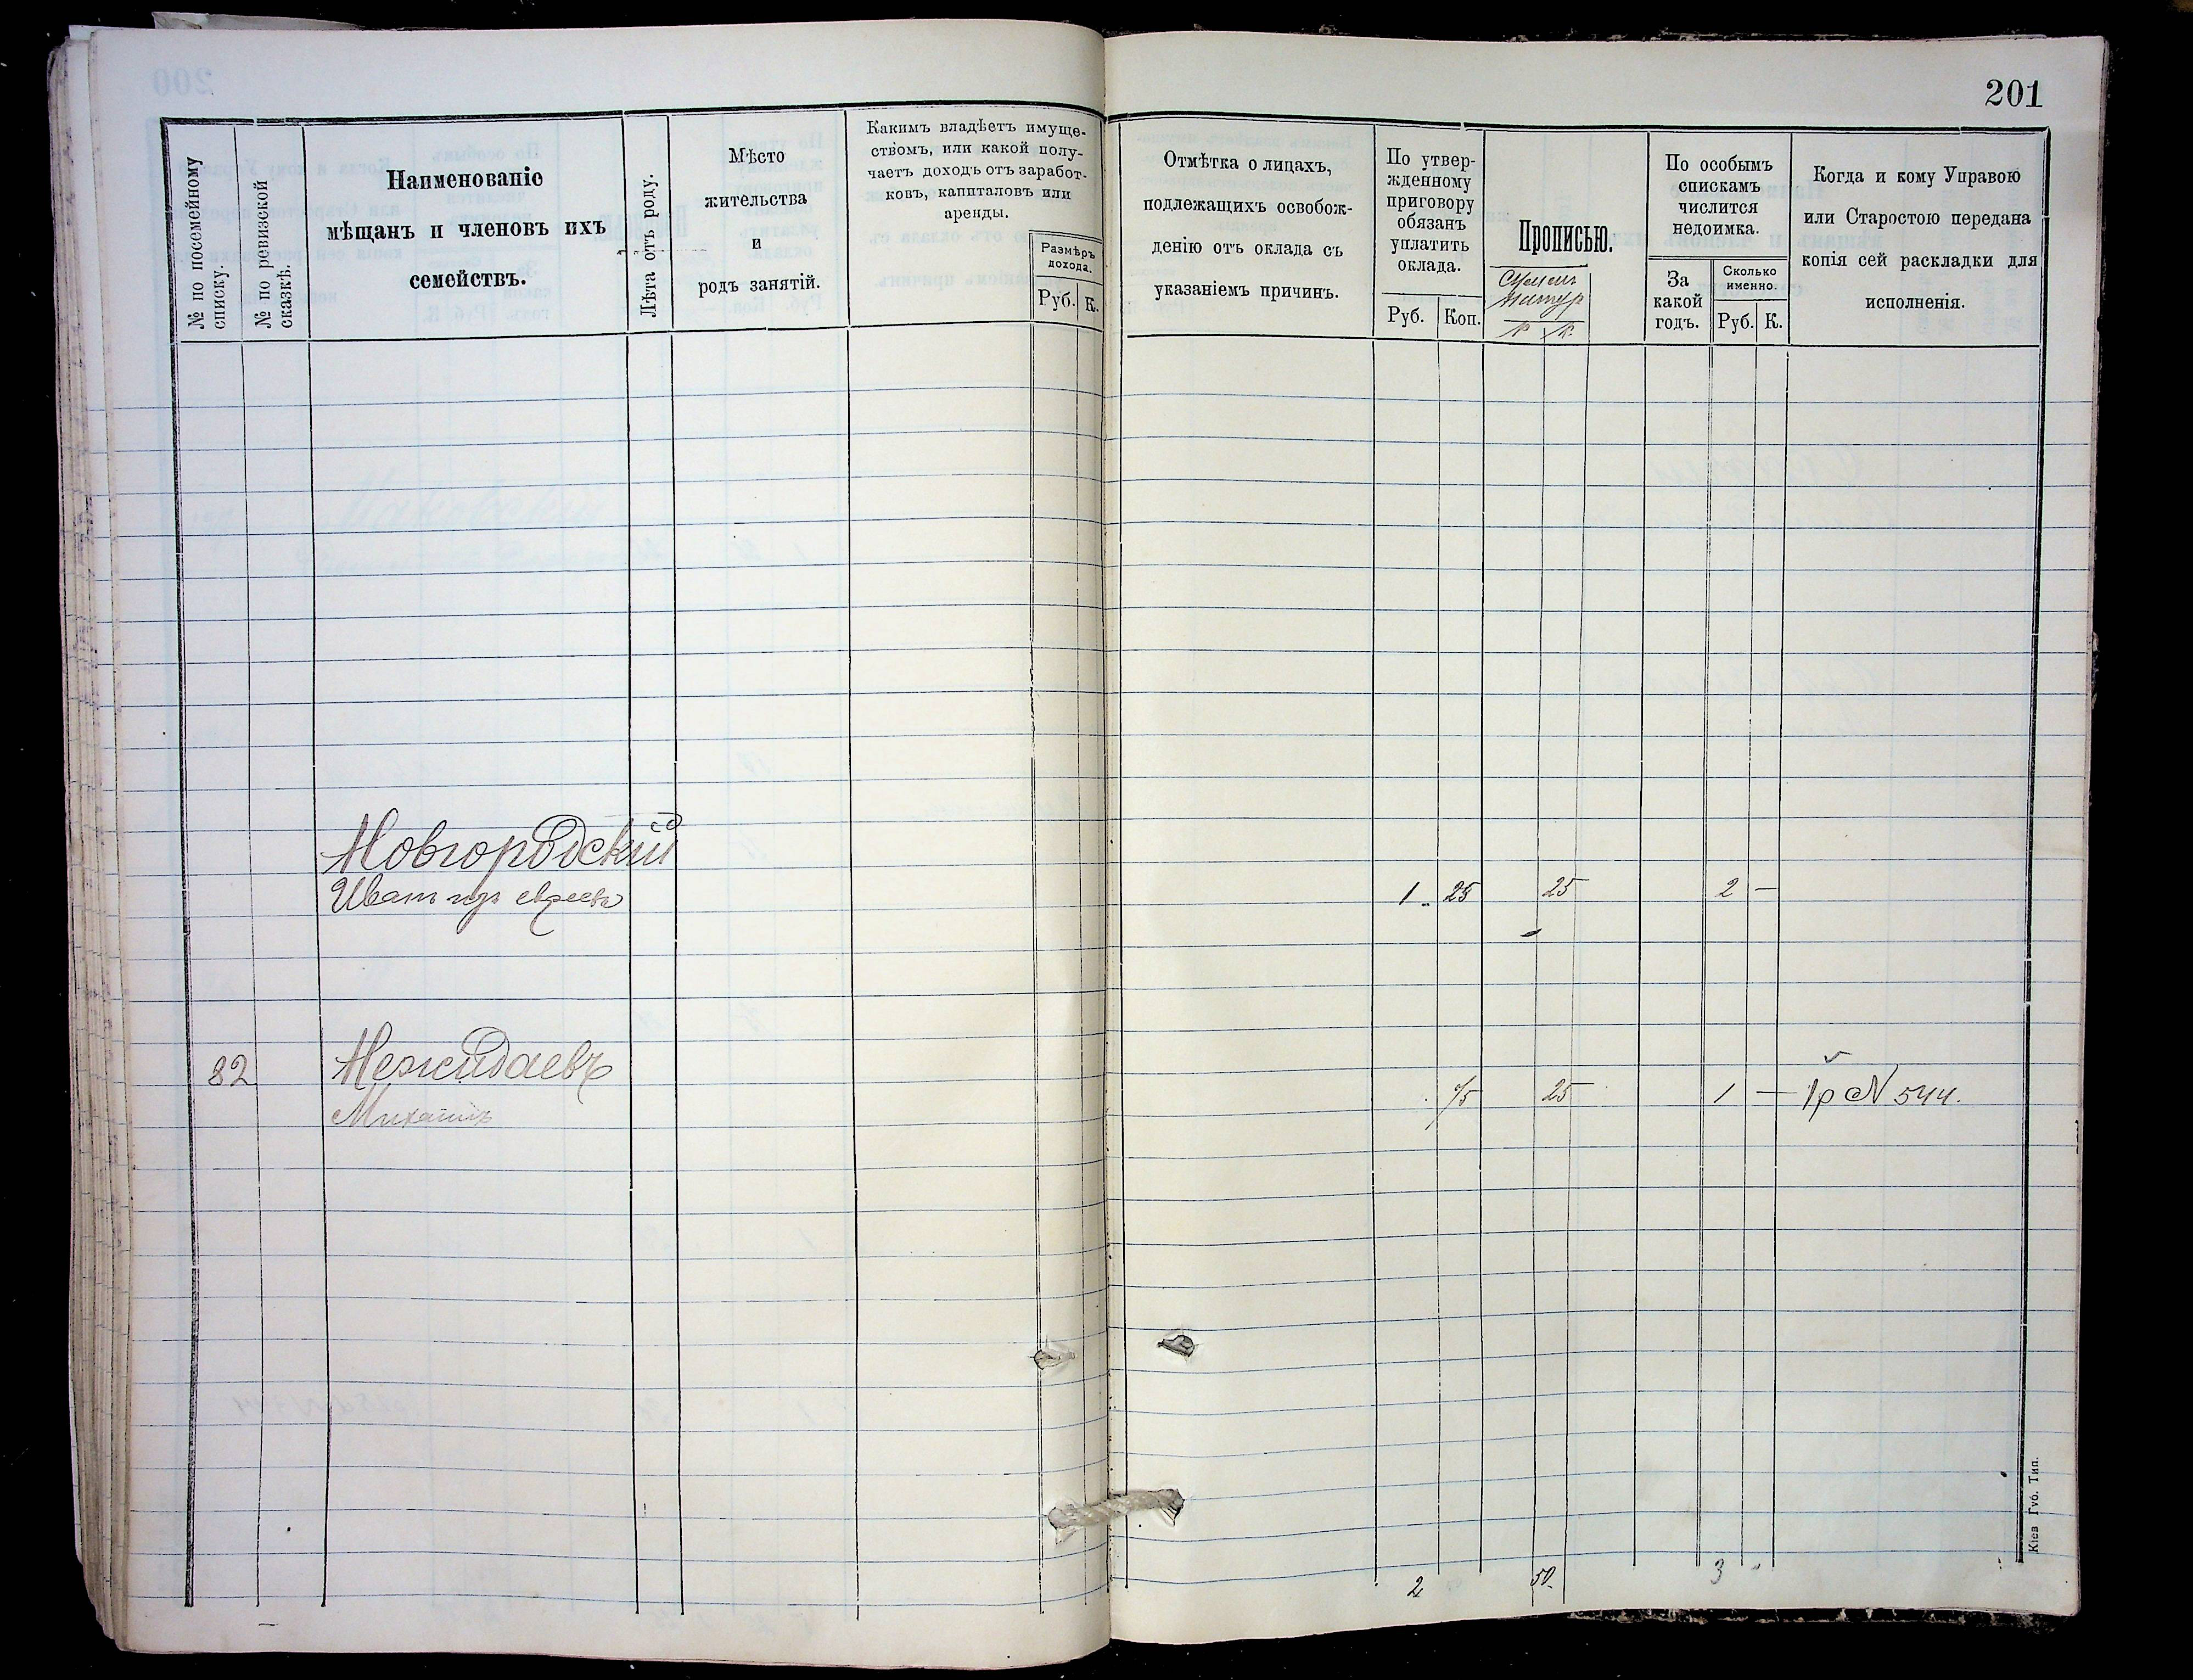 201
№ по посемейному списку.
№ по ревизской сказкѣ.
Наименованіе
мѣщанъ и членовъ ихъ
семействъ.
Лѣта отъ роду.
Мѣсто
жительства
и
родъ занятій.
Какимъ владѣетъ имуще-
ствомъ, или какой полу-
чаетъ доходъ отъ заработ-
ковъ, капиталовъ или
аренды.
Размѣръ
дохода.
Руб. К.
Отмѣтка о лицахъ,
подлежащихъ освобож-
денію отъ оклада съ
указаніемъ причинъ.
По утвер-
жденному
приговору
обязанъ
уплатить
оклада.
Руб. Коп.
Прописью.
р к.
По особымъ
спискамъ
числится
недоимка.
За
какой
годъ.
Сколько
именно.
Руб. К.
Когда и кому Управою
или Старостою передана
копія сей раскладки для
исполненія.
Новгородскій
Иванъ изъ евреевъ 1 25 25 2 —
82 Нежидаевъ
Михаилъ
25 1 — 1р N 544.
2 50. 3
Кіев Губ. Тип.